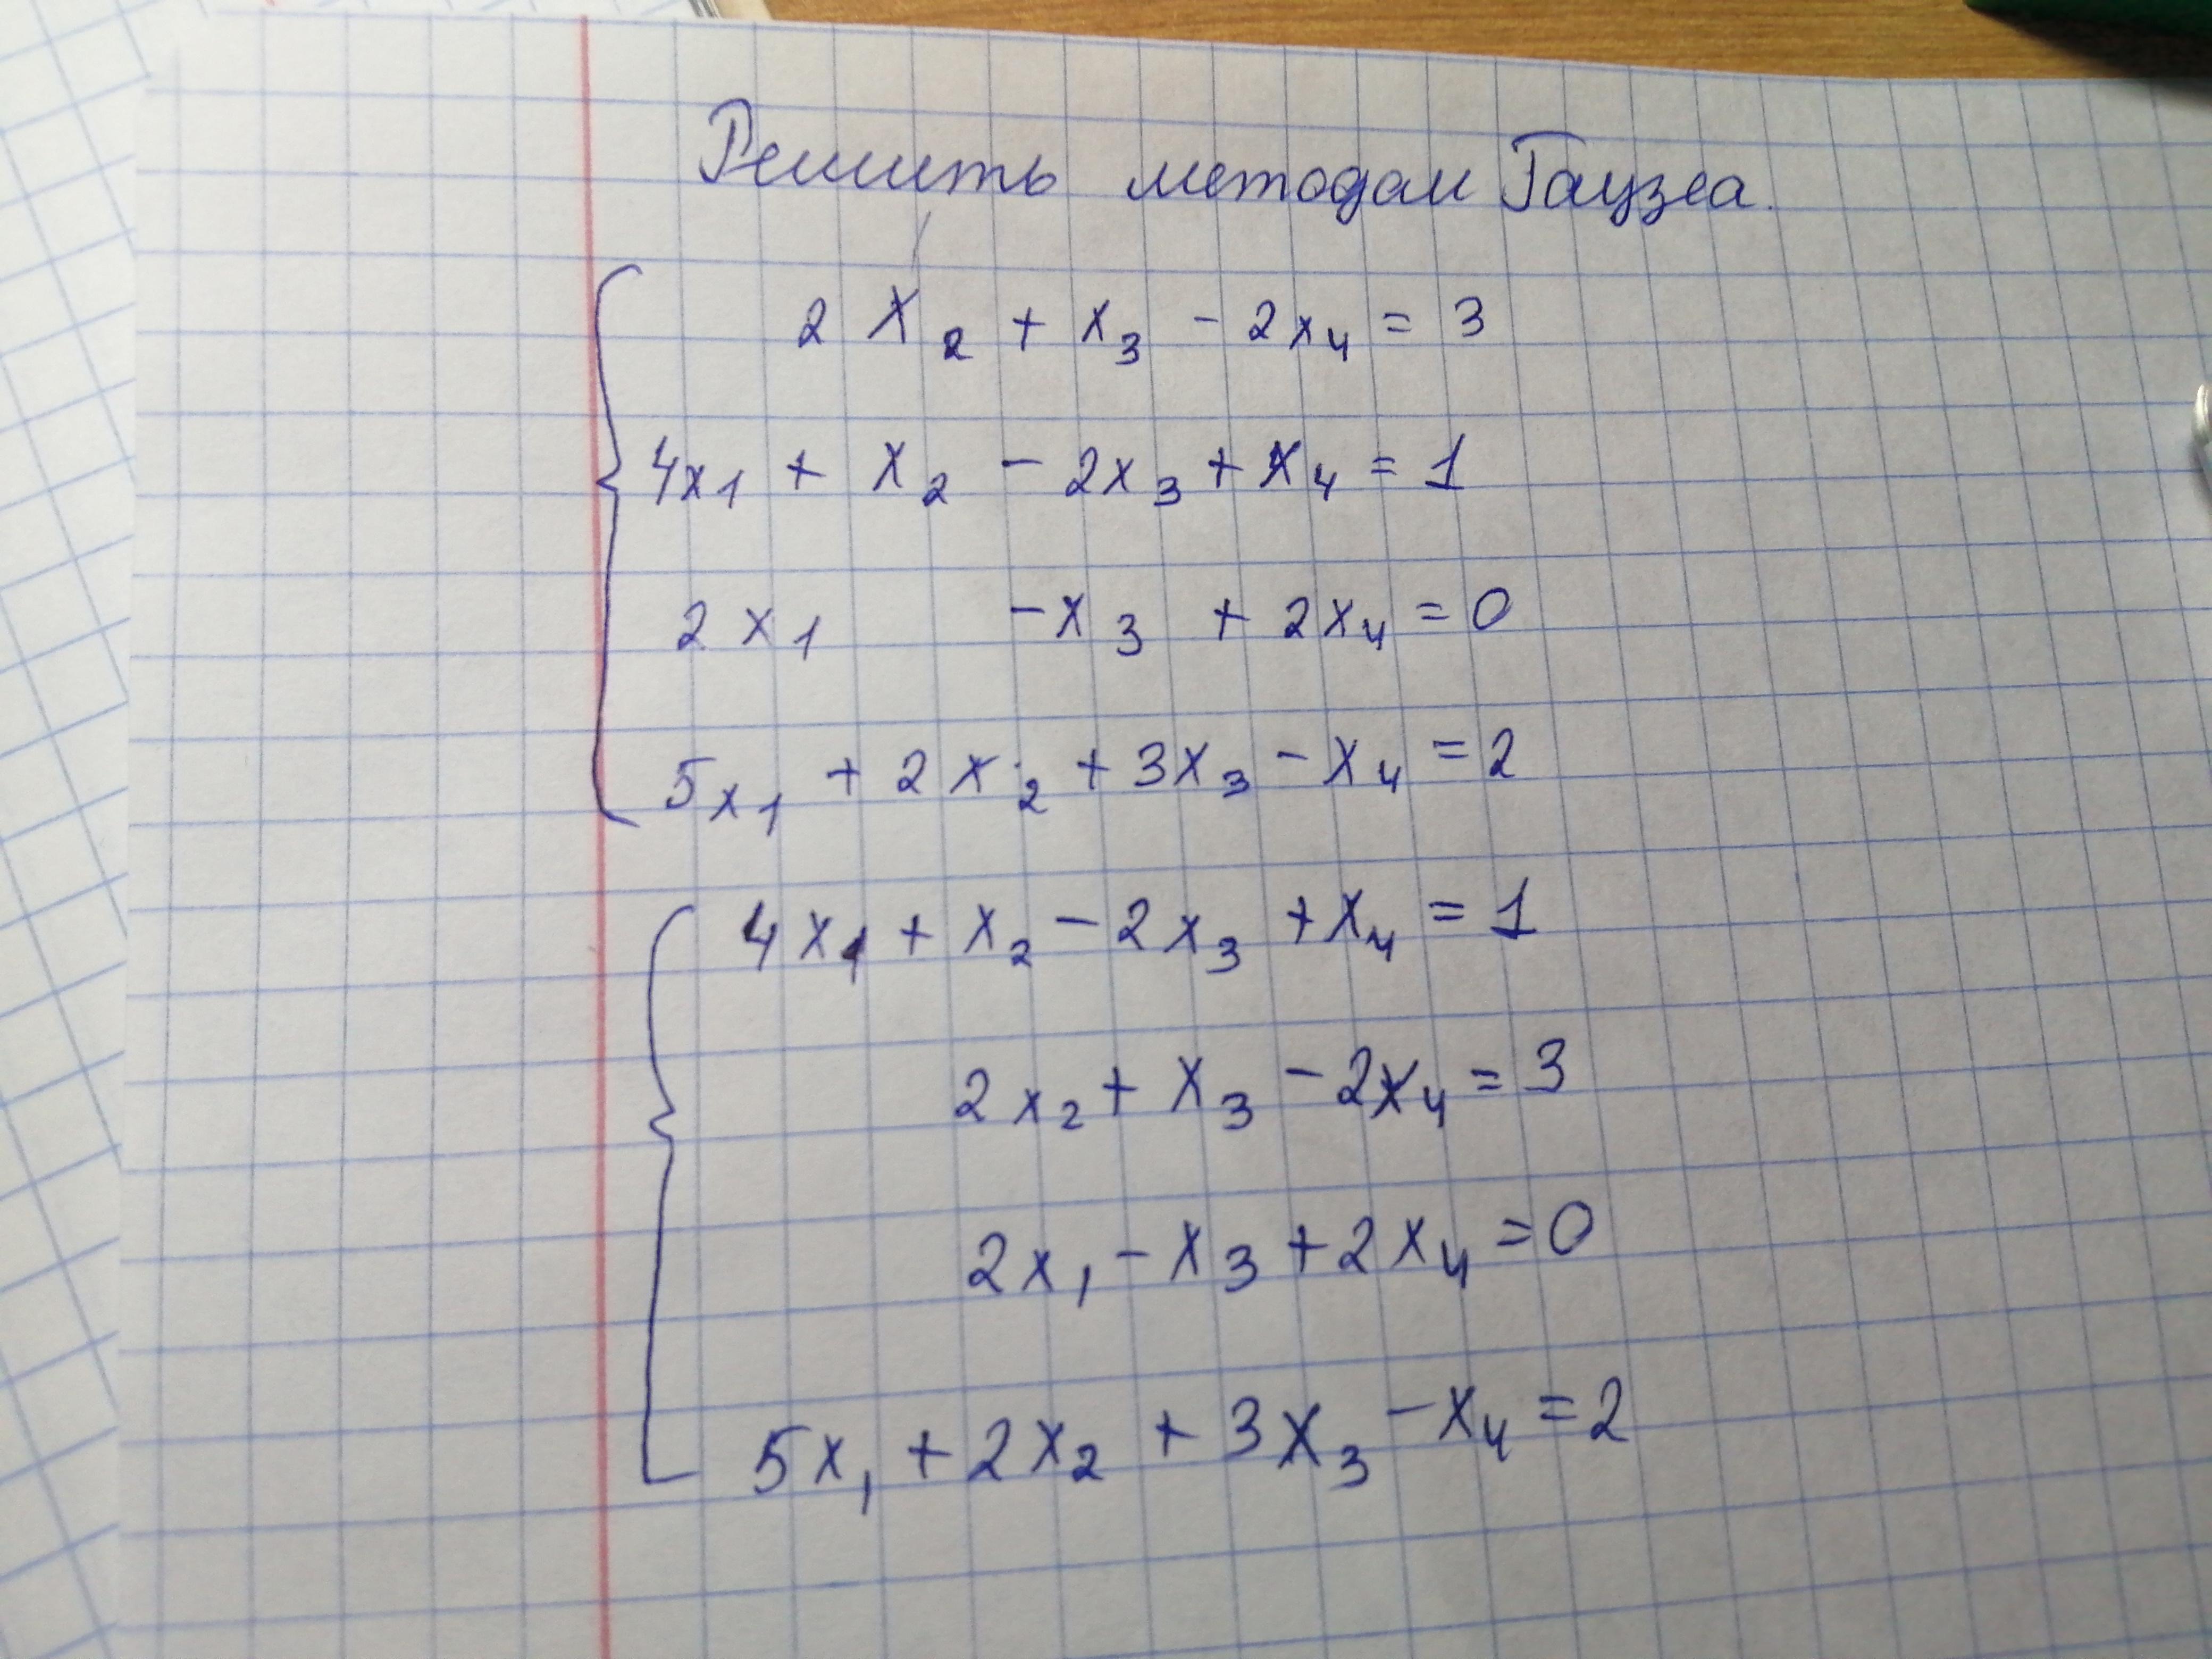 Решить методом Гаузса.
2x₂ + x₃ - 2x₄ = 3
4x₁ + x₂ - 2x₃ + x₄ = 1
2x₁ - x₃ + 2x₄ = 0
5x₁ + 2x₂ + 3x₃ - x₄ = 2
4x₁ + x₂ - 2x₃ + x₄ = 1
2x₂ + x₃ - 2x₄ = 3
2x₁ - x₃ + 2x₄ = 0
5x₁ + 2x₂ + 3x₃ - x₄ = 2